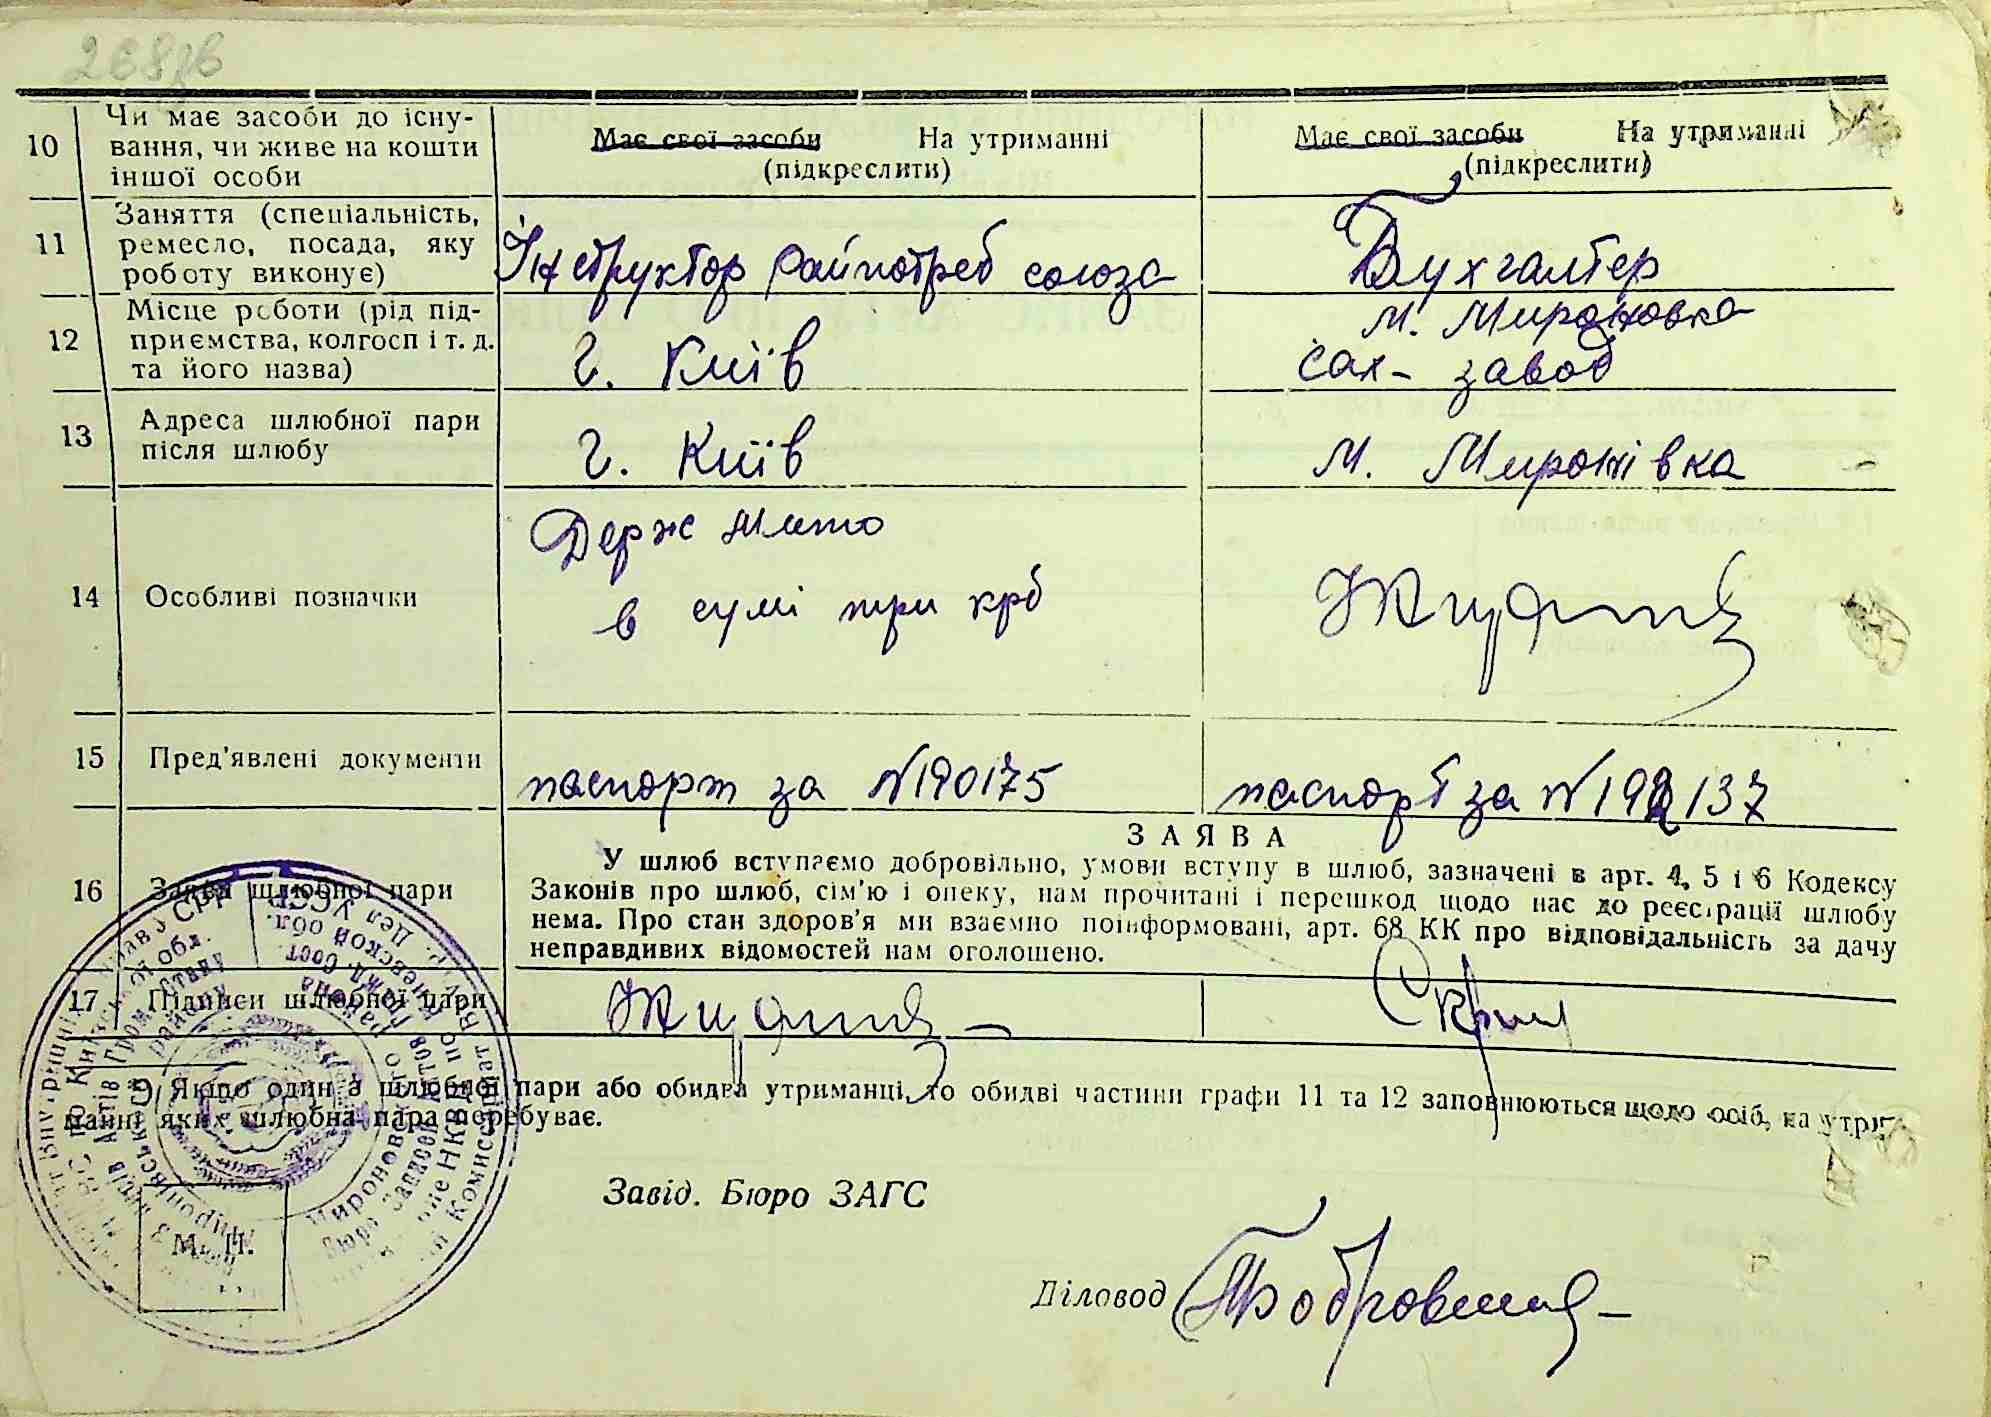 268зв
10 Чи має засоби до існу-
вання, чи живе на кошти
іншої особи
Має свої засоби На утриманні
(підкреслити)
Має свої засоби На утриманні
(підкреслити)
11 Заняття (спеціальність,
ремесло, посада, яку
роботу виконує)
Інструктор Райпотреб союза
Бухгалтер
12 Місце роботи (рід під-
приємства, колгосп і т. д.
та його назва)
г. Київ
м. Мироновка
сах- завод
13 Адреса шлюбної пари
після шлюбу
г. Київ
м. Миронівка
14 Особливі позначки
Держ мито
в сумі три крб
15 Пред'явлені документи
паспорт за №190175
паспорт за № 192137
16 Заява шлюбної пари
ЗАЯВА
У шлюб вступаємо добровільно, умови вступу в шлюб, зазначені в арт. 4, 5 і 6 Кодексу
Законів про шлюб, сім'ю і опеку, нам прочитані і перешкод щодо нас до реєстрації шлюбу
нема. Про стан здоров'я ми взаємно поінформовані, арт. 68 КК про відповідальність за дачу
неправдивих відомостей нам оголошено.
17 Підписи шлюбної пари
Якщо один з шлюбної пари або обидва утриманці, то обидві частини графи 11 та 12 заповнюються щодо осіб, на утри-
манні яких шлюбна пара перебуває.
Завід. Бюро ЗАГС
М. П.
Діловод